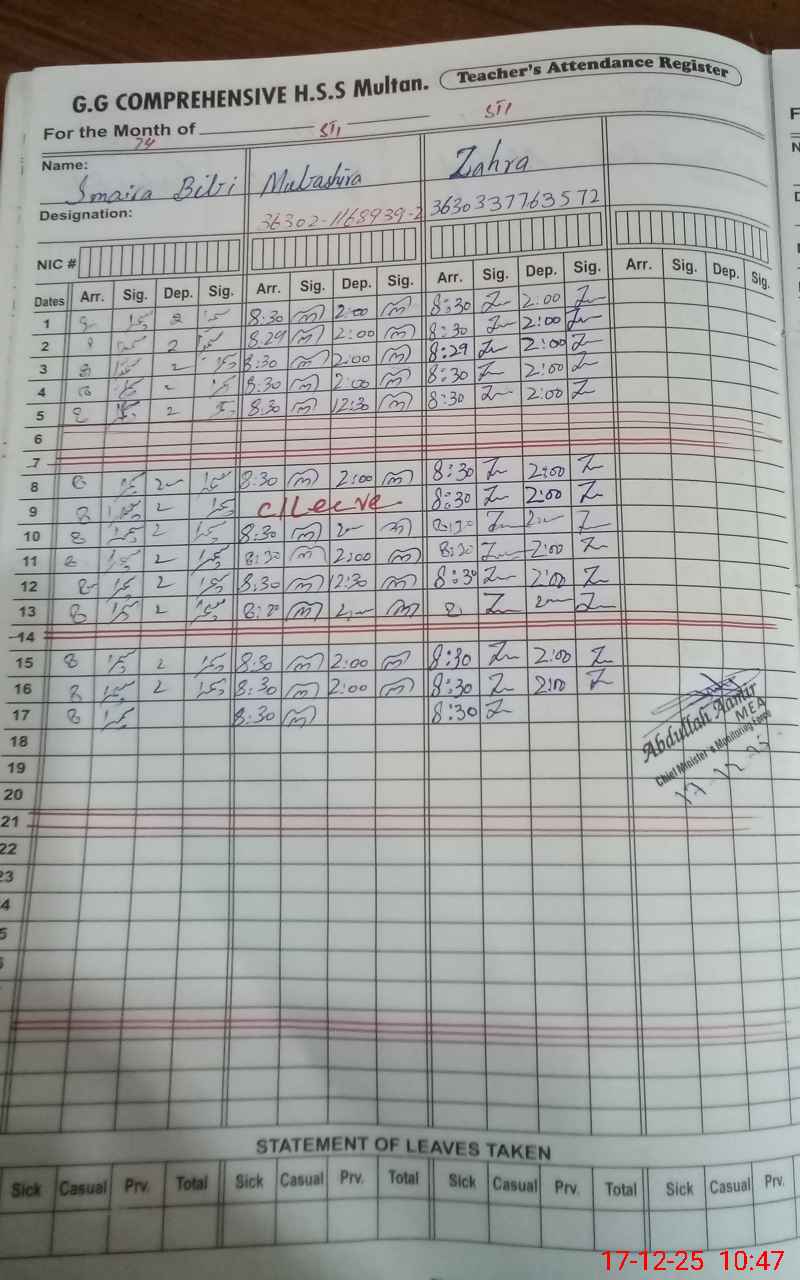 G.G COMPREHENSIVE H.S.S Multan. Teacher's Attendance Register
For the Month of
Name: Smaira Bibi Mubashira Zahra
Designation: 36302-1168939-2 3630337763572
NIC #
Dates Arr. Sig. Dep. Sig. Arr. Sig. Dep. Sig. Arr. Sig. Dep. Sig. Arr. Sig. Dep. Sig.
1 8 2 8:30 2:00 8:30 2:00
2 8 2 8:29 2:00 8:30 2:00
3 8 2 8:30 2:00 8:29 2:00
4 8 2 8:30 2:00 8:30 2:00
5 8 2 8:30 12:30 8:30 2:00
6
7
8 8 2 8:30 2:00 8:30 2:00
9 8 2 C/Leeve 8:30 2:00
10 8 2 8:30 2 8:30 2
11 8 2 8:30 2:00 8:30 2:00
12 8 2 8:30 12:30 8:30 2:00
13 8 2 8:30 2 8 2
14
15 8 2 8:30 2:00 8:30 2:00
16 8 2 8:30 2:00 8:30 2:00
17 8 8:30 8:30
Abdullah Aamir
MEA
Chief Minister's Monitoring Force
17-12-25
18
19
20
21
22
23
STATEMENT OF LEAVES TAKEN
Sick Casual Prv. Total Sick Casual Prv. Total Sick Casual Prv. Total Sick Casual Prv.
17-12-25 10:47